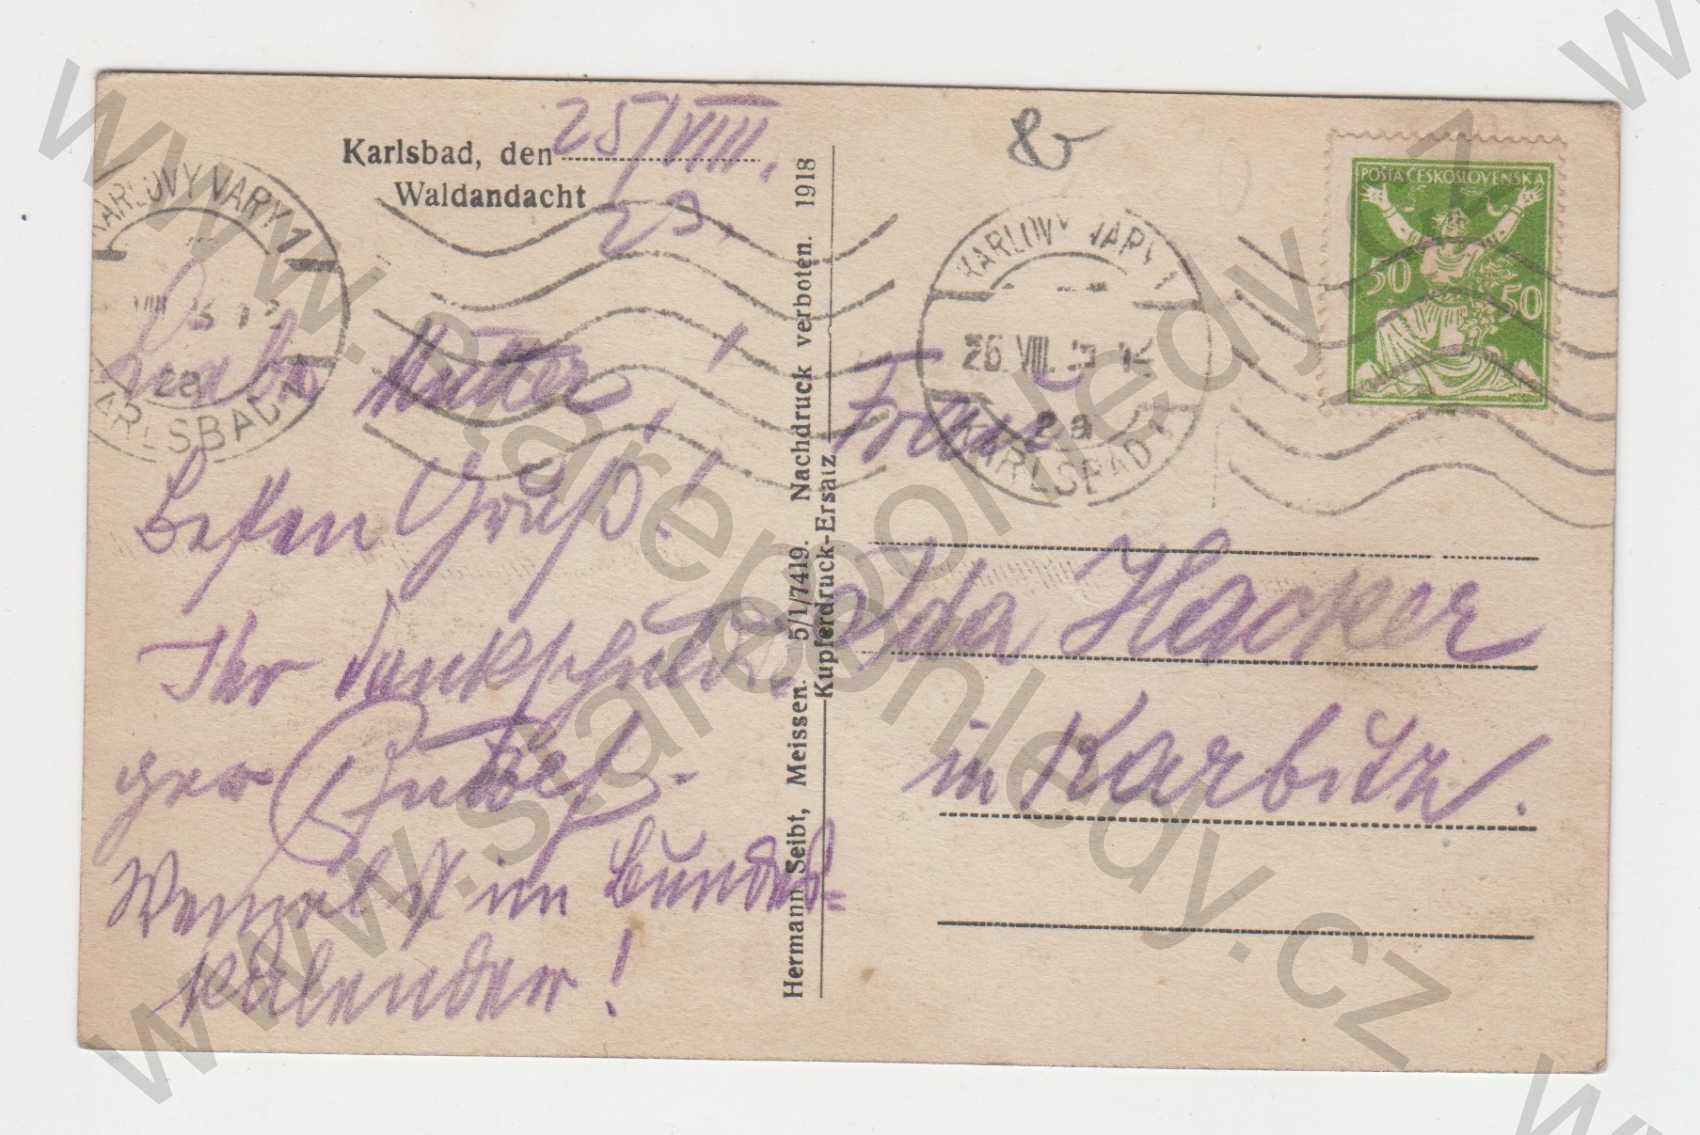 Karlsbad, den 25/VIII.
Waldandacht 23.
Liebe Mutter!
Besten Gruß!
Ihr dankschuldi-
ger Gustel.
Wenzel ist im Bundes=
kalender!
Hermann Seibt, Meissen. 5/1/7419. Nachdruck verboten. 1918
Kupferdruck-Ersatz
Frau
Ida Hacker
in Karbitz.
POŠTA ČESKOSLOVENSKÁ
50 50
KARLOVY VARY 1
26 VIII. 12
2a
KARLSBAD 1
KARLOVY VARY 1
VIII 12
2a
KARLSBAD 1
www.starepohledy.cz
www.starepohledy.cz